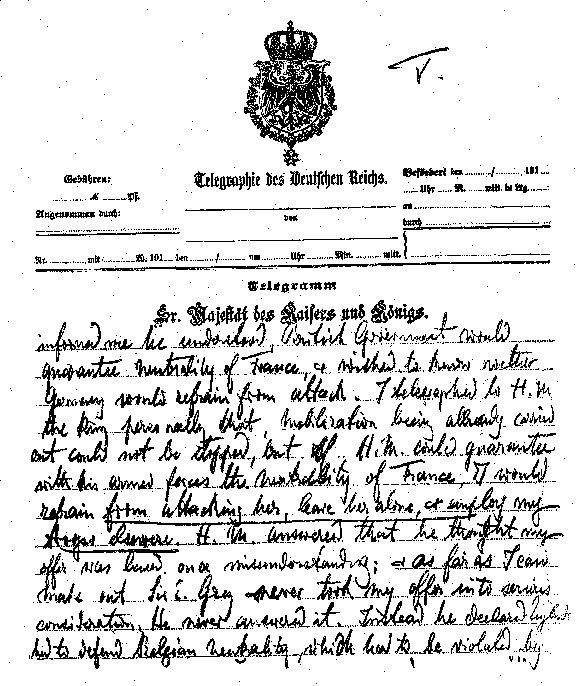 V.
Gebühren:
Telegraphie des Deutschen Reichs.
Befördert den / 191
M. Pf.
Uhr M. mitt. in Ltg.
Angenommen durch:
von
an
durch
Nr. mit W. 191 den / um Uhr Min. mitt.
Telegramm
Sr. Majestät des Kaisers und Königs.
informed me he understood, British Government would
guarantee neutrality of France, & wished to know wether
Germany would refrain from attack. I telegraphed to H.M.
the King personally that, mobilization being already carried
out could not be stopped, but if H.M. could guarantee
with his armed forces the neutrality of France, I would
refrain from attacking her, leave her alone, & employ my
troops elsewere. H.M. answered that he thought my
offer was based on a misunderstanding; & as far as I can
make out Sir E. Grey never took my offer into serious
consideration. He never answered it. Instead he declared England
had to defend Belgian neutrality, which had to be violated by